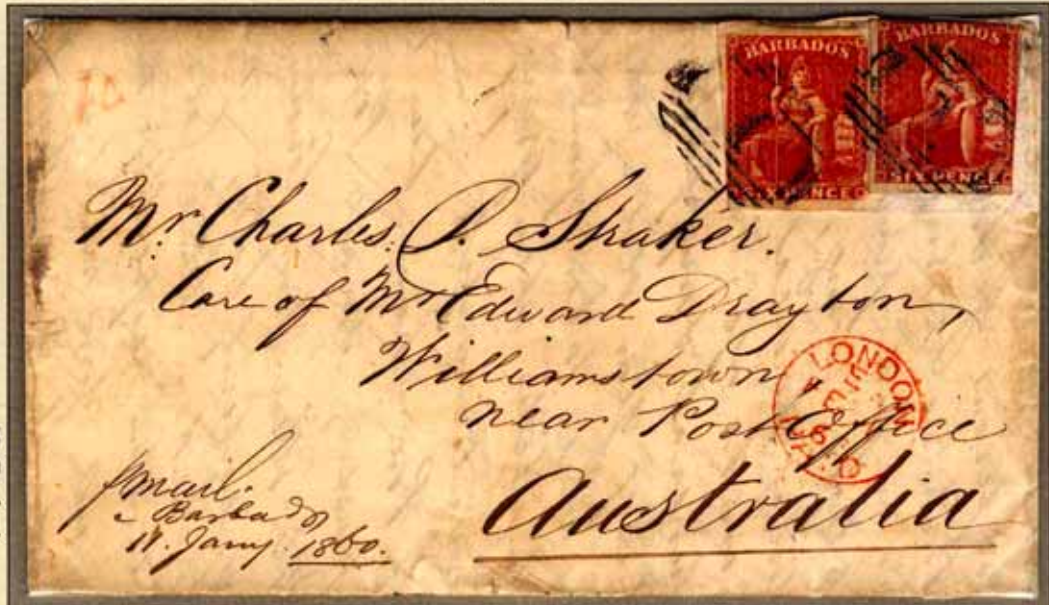 BARBADOS
SIX PENCE
BARBADOS
SIX PENCE
Mr. Charles. P. Straker.
Care of Mr Edward Drayton,
Williamstown,
near Post Office
Australia
LONDON
mail.
Barbados
1860.